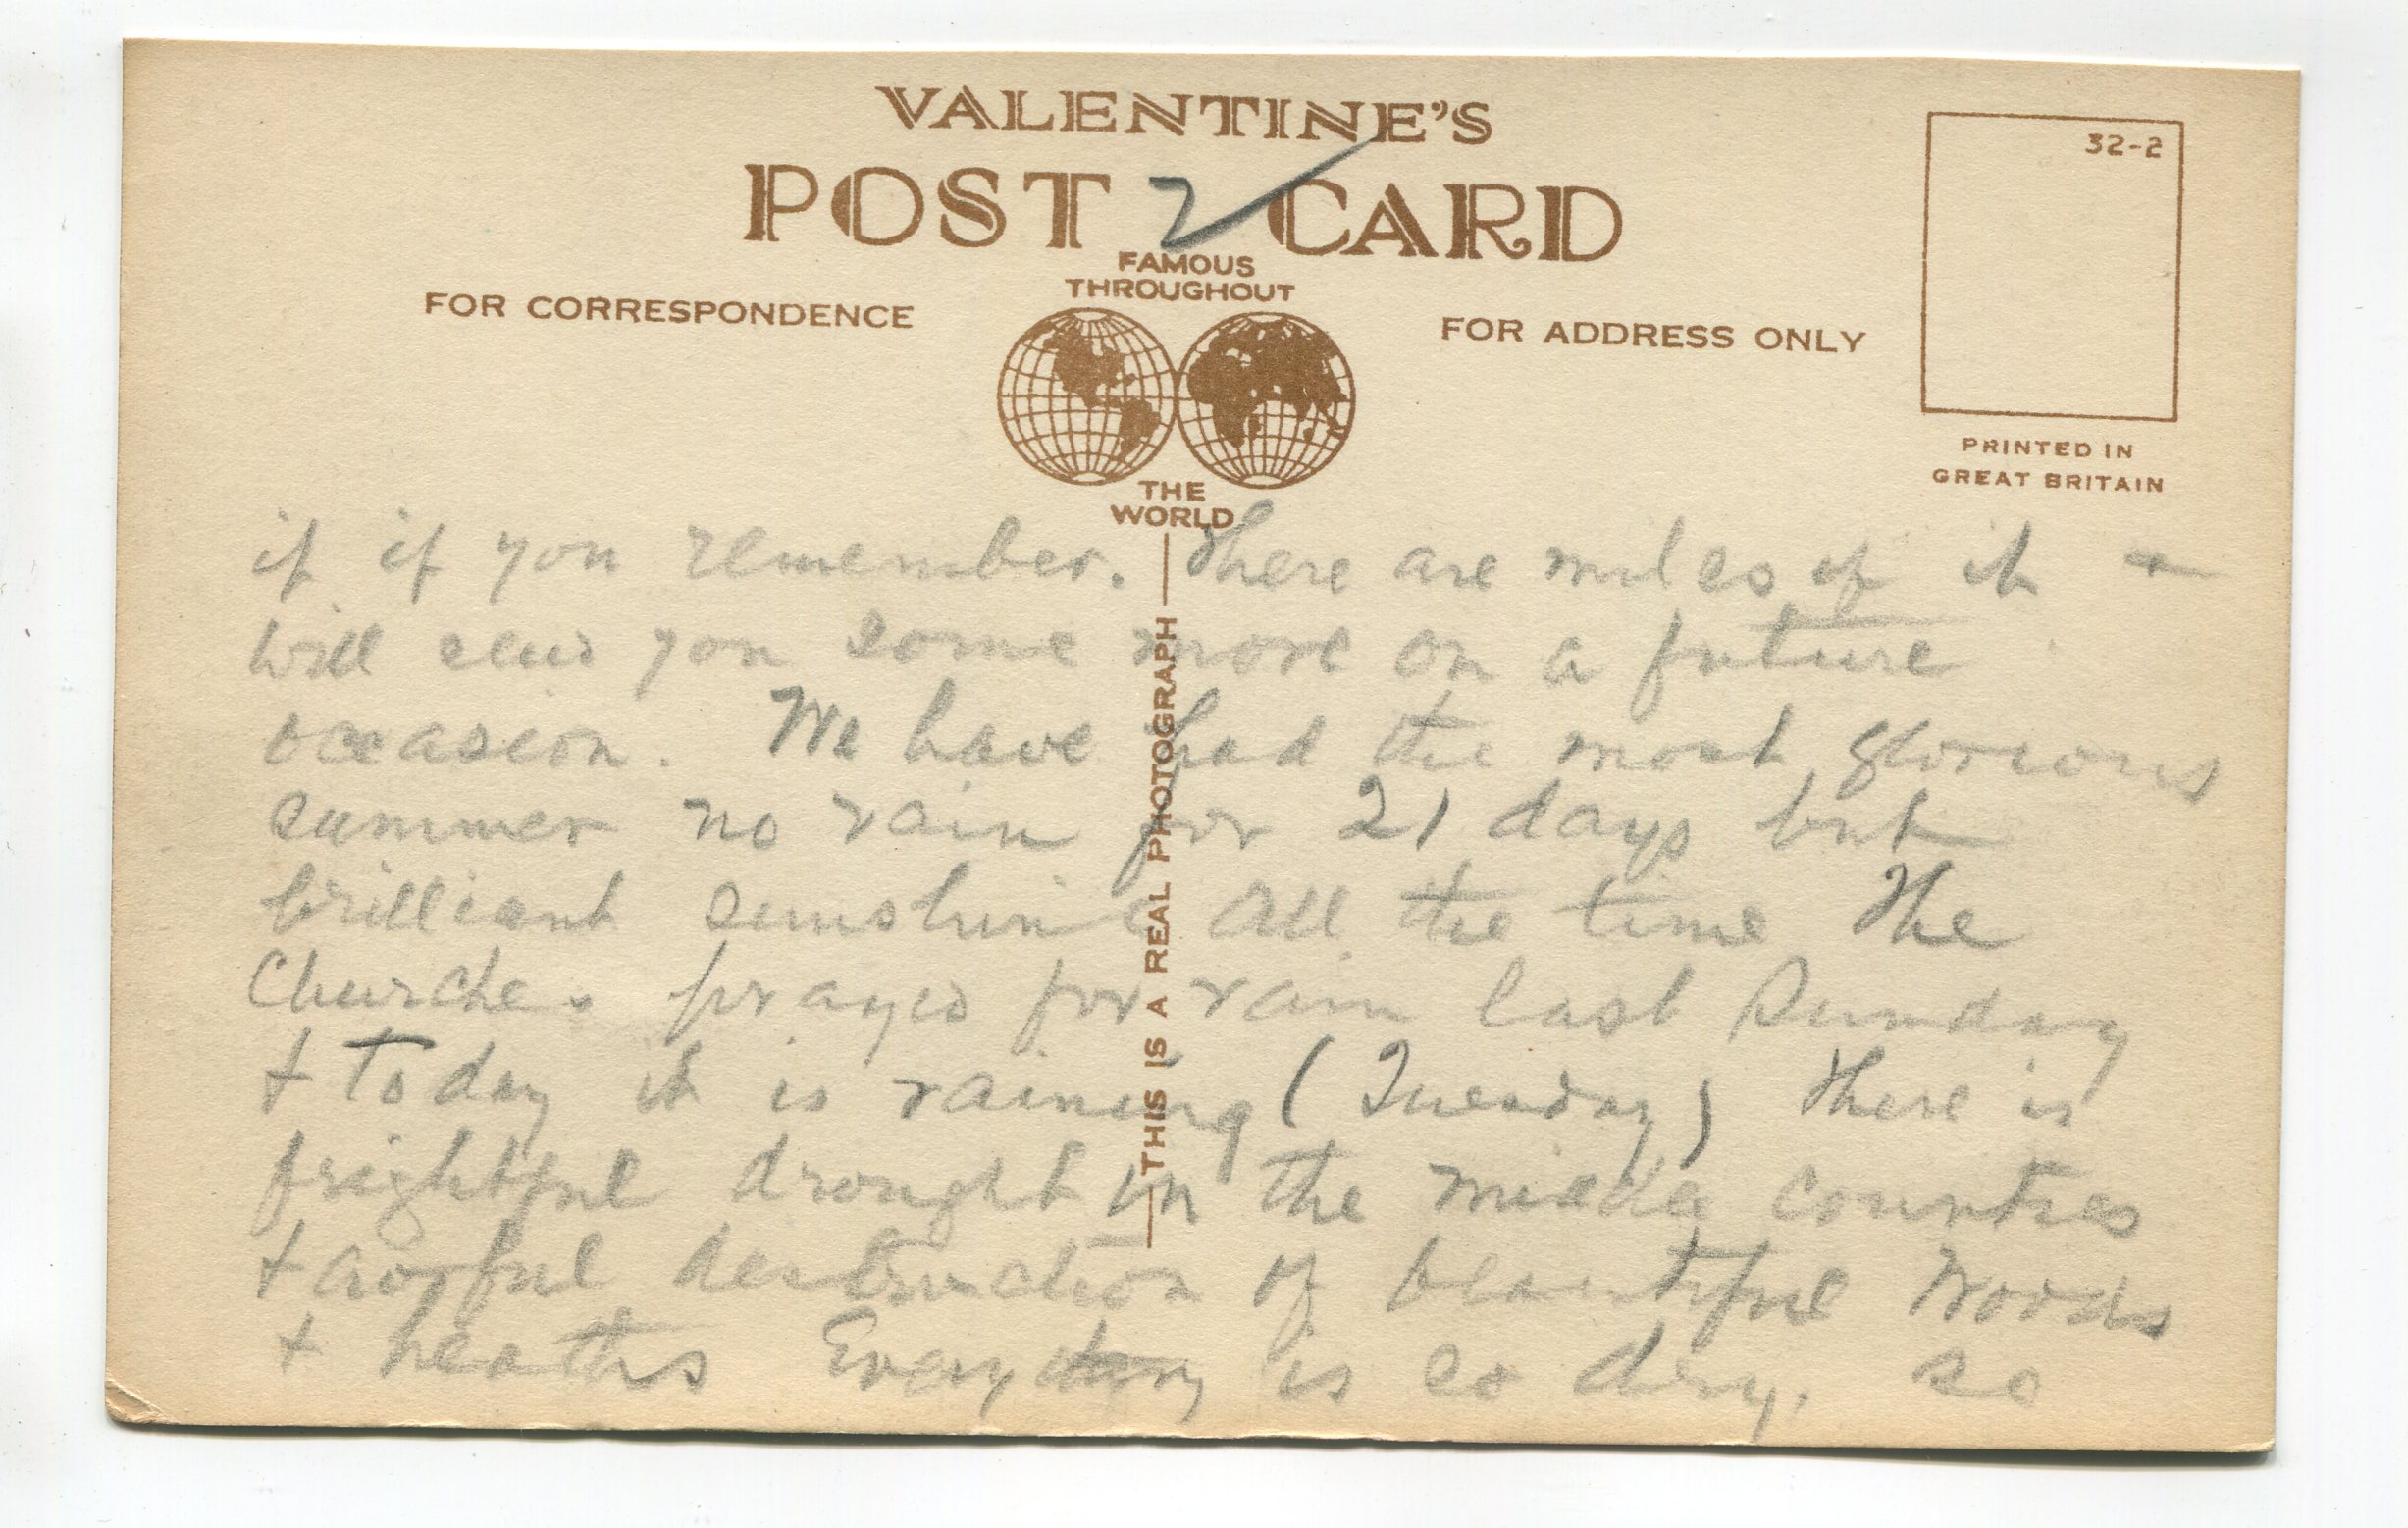 VALENTINE'S
32-2
POST 2 CARD
FAMOUS
THROUGHOUT
FOR CORRESPONDENCE
FOR ADDRESS ONLY
PRINTED IN
GREAT BRITAIN
THE
WORLD
THIS IS A REAL PHOTOGRAPH
if you remember. There are miles of it
will send you some more on a future
occasion. We have had the most glorious
summer no rain for 21 days but
brilliant sunshine all the time The
Churches prayed for rain last Sunday
+ today it is raining (Tuesday) There is
frightful drought in the middle counties
+ awful destruction of beautiful woods
+ heaths is so dry. so